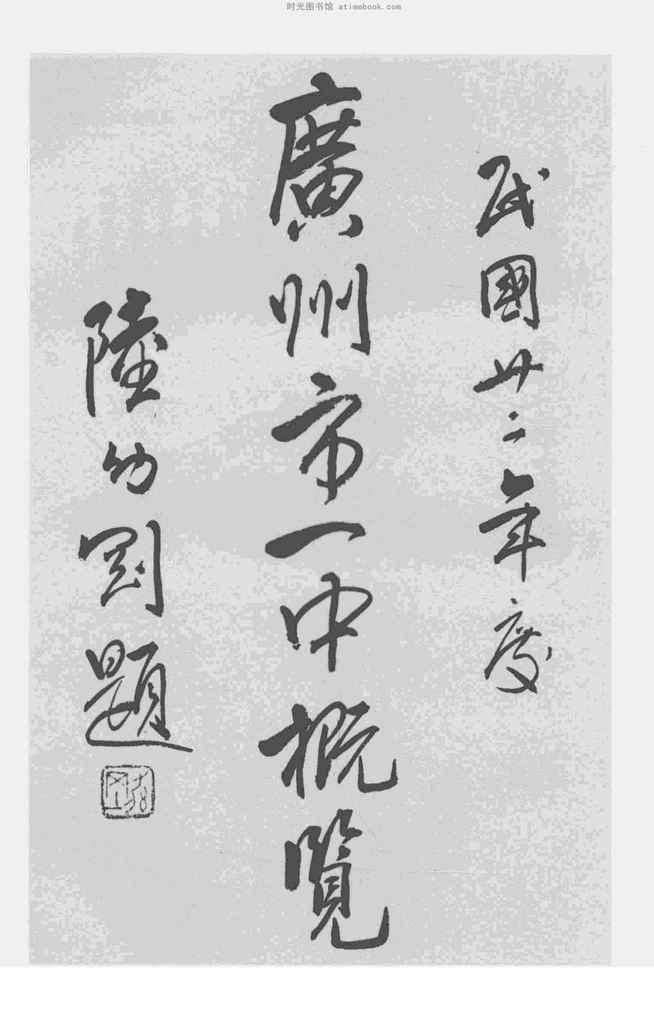 时光图书馆 atimebook.com
民國卅二年度
廣州市一中概覽
陸幼剛題